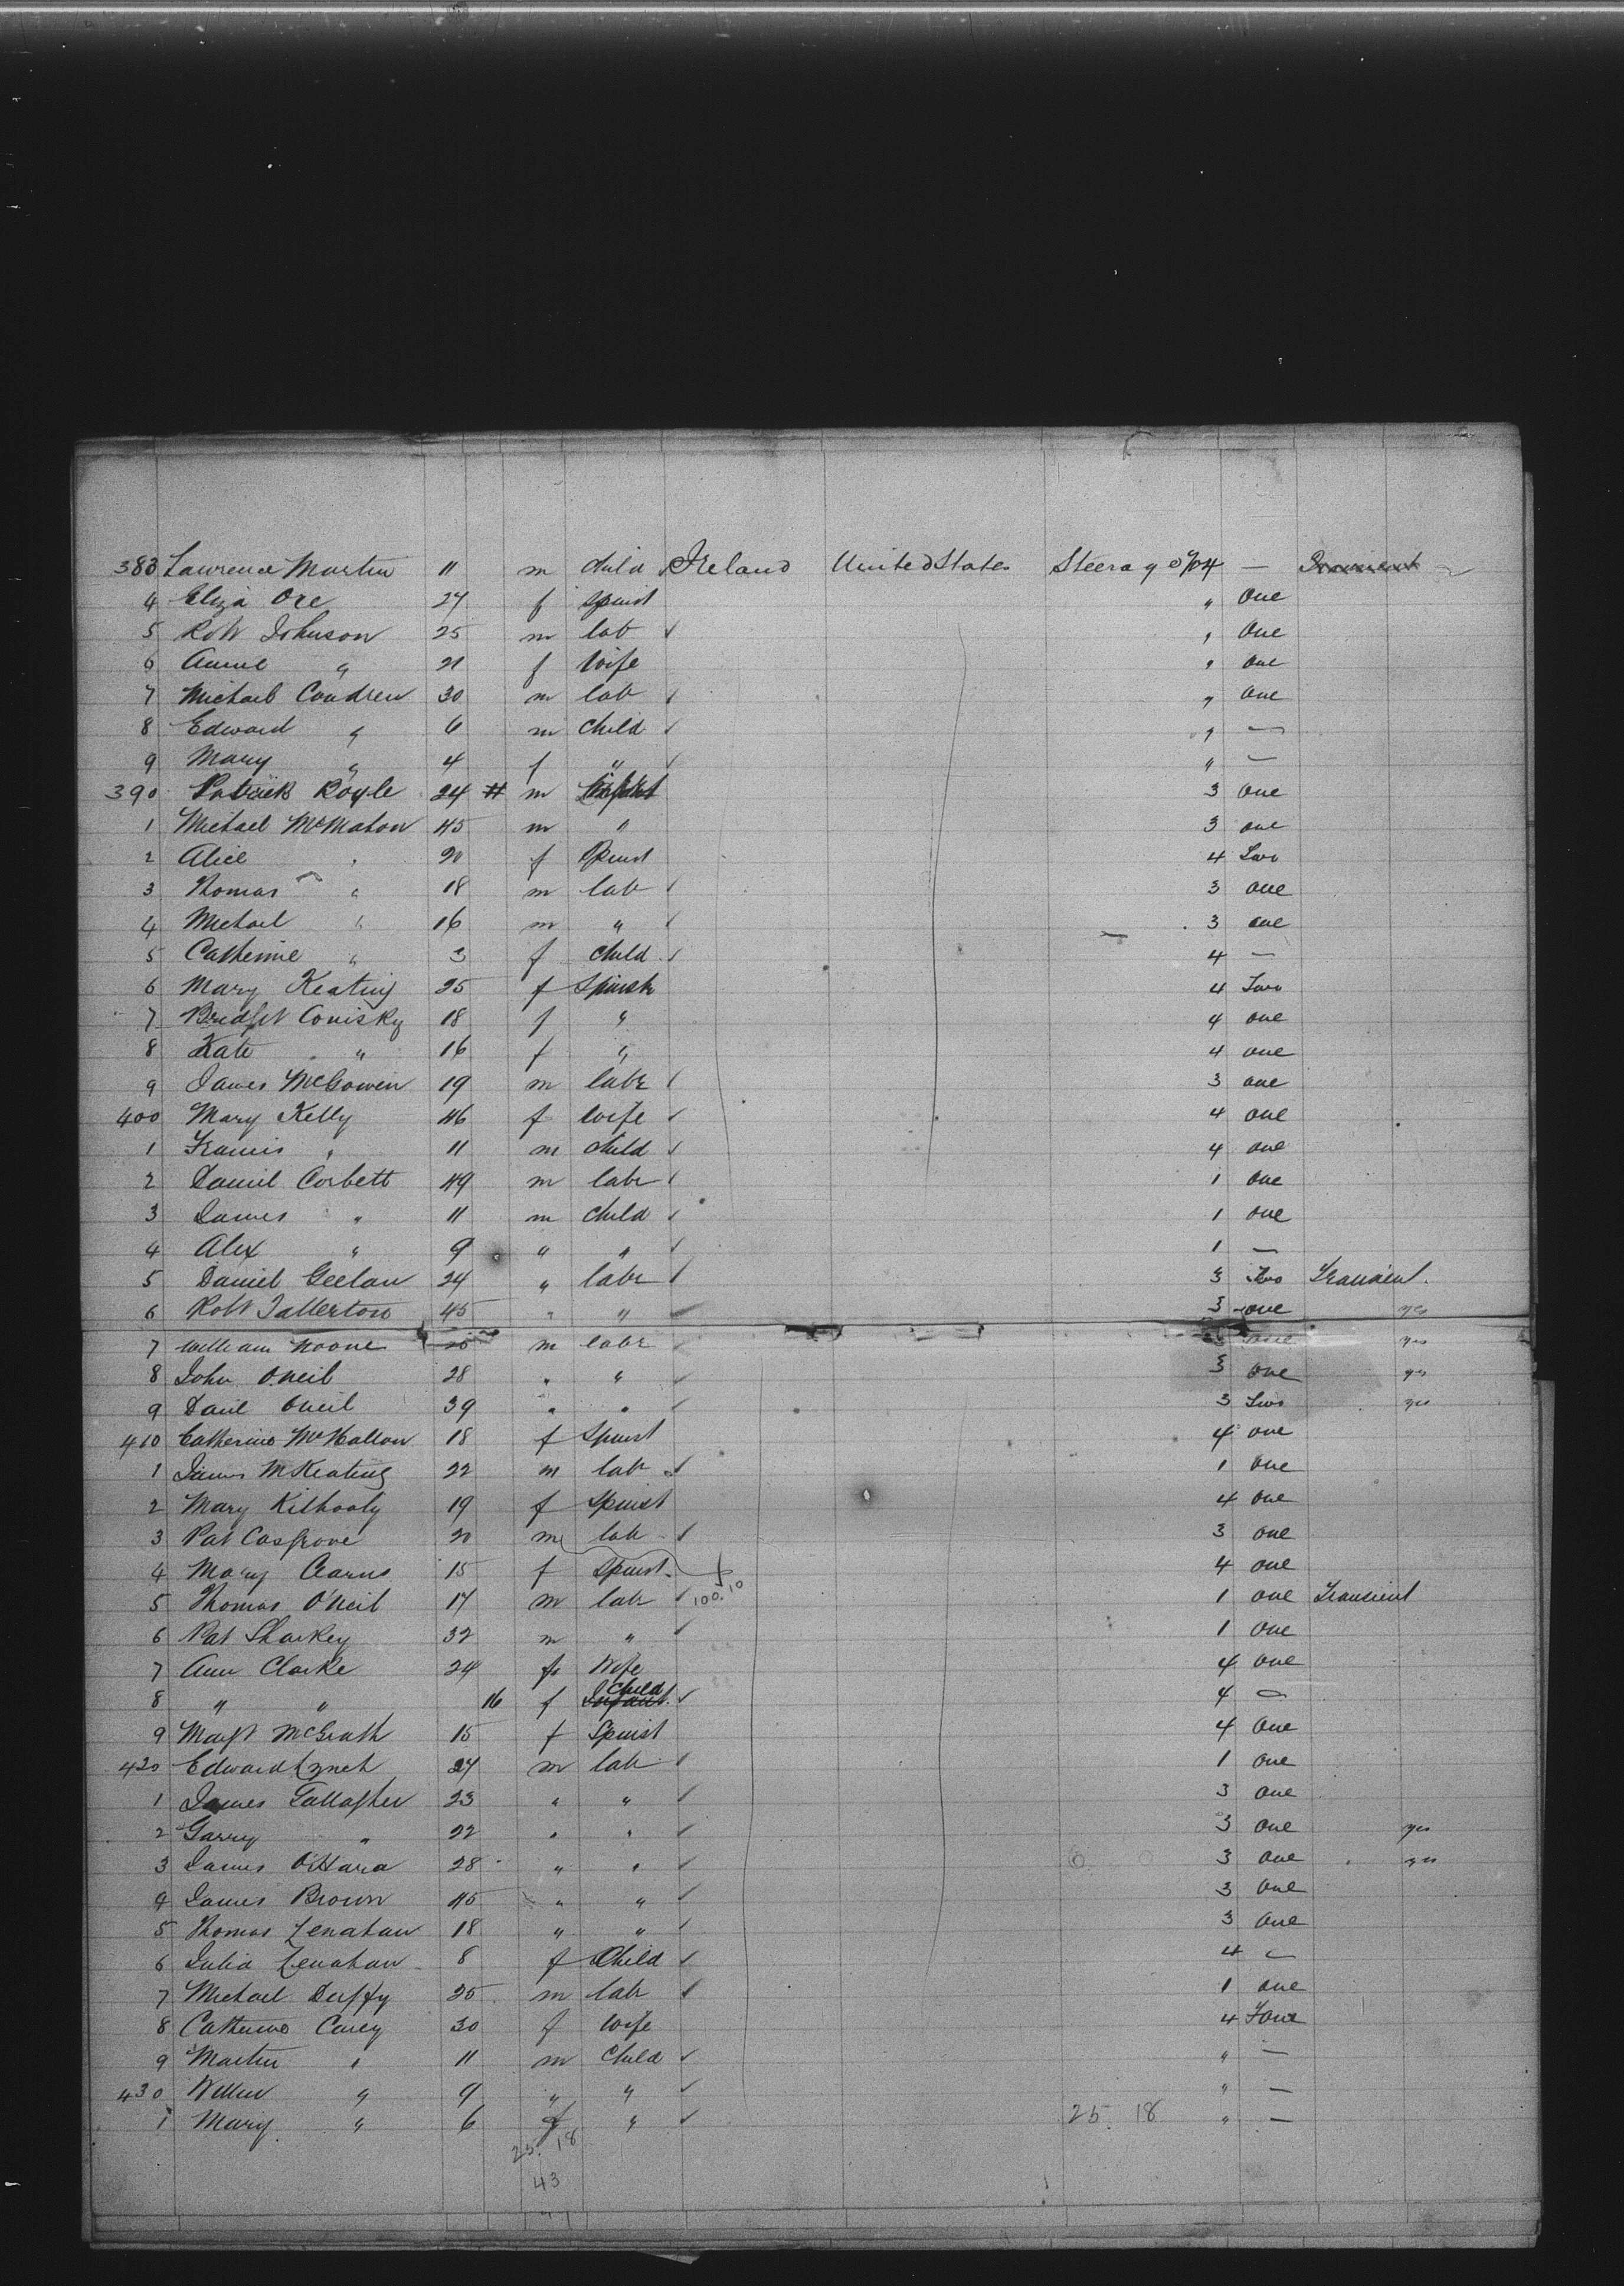 383 Lawrence Martin 11 m child Ireland United States Steerage 4 —
4 Eliza Ore 27 f spinst " One
5 Robt Johnson 25 m lab ✓ " One
6 Annie " 21 f Wife " one
7 Michael Condren 30 m lab ✓ " one
8 Edward " 6 m child ✓ " —
9 Mary " 4 f " ✓ " —
390 Patrick Royle 24 # m 3 one
1 Michael McMahon 45 m " 3 one
2 Alice " 20 f Spinst 4 Two
3 Thomas " 18 m lab ✓ 3 one
4 Michael " 16 m " ✓ 3 one
5 Catherine " 3 f child ✓ 4 —
6 Mary Keating 25 f Spinst 4 Two
7 Bridget Comisky 18 f " 4 one
8 Kate " 16 f " 4 one
9 James McGowen 19 m labr ✓ 3 one
400 Mary Kelly 46 f wife ✓ 4 one
1 Francis " 11 m child ✓ 4 one
2 Daniel Corbett 49 m labr ✓ 1 one
3 James " 11 m child ✓ 1 one
4 Alex " 9 " " ✓ 1 —
5 Daniel Geelan 24 " labr ✓ 3 Two Transient.
6 Robt Tallerton 45 " " ✓ 3 one yes
7 William Noone m labr ✓ one yes
8 John O.Neil 28 " " ✓ 3 one yes
9 Danl ONeil 39 " " ✓ 3 Two yes
410 Catherine McHallon 18 f Spinst 4 one
1 James McKeating 22 m lab ✓ 1 one
2 Mary Kilhooly 19 f Spinst 4 one
3 Pat Cosgrove 20 m lab ✓ 3 one
4 Mary Cearns 15 f Spinst 4 one
5 Thomas O'Neil 17 m labr ✓ 100.10 1 one Transient
6 Pat Sharkey 32 m " ✓ 1 one
7 Ann Clarke 24 f Wife 4 one
8 " " 16 f Infant. Child ✓ 4 —
9 Margt McGrath 15 f Spinst 4 One
420 Edward Lynch 27 m lab ✓ 1 one
1 James Gallagher 23 " " ✓ 3 one
2 Garry " 22 " " ✓ 3 one yes
3 James O'Hara 28 " " ✓ 3 one yes
4 James Brown 45 " " ✓ 3 one
5 Thomas Lenahan 18 " " ✓ 3 one
6 Julia Lenahan 8 f Child ✓ 4 —
7 Michael Duffy 25 m lab ✓ 1 one
8 Catherine Carey 30 f wife 4 Four
9 Martin " 11 m Child ✓ " —
430 Willm " 9 " " ✓ " —
1 Mary " 6 f " ✓ 25. 18 " —
25. 18
43